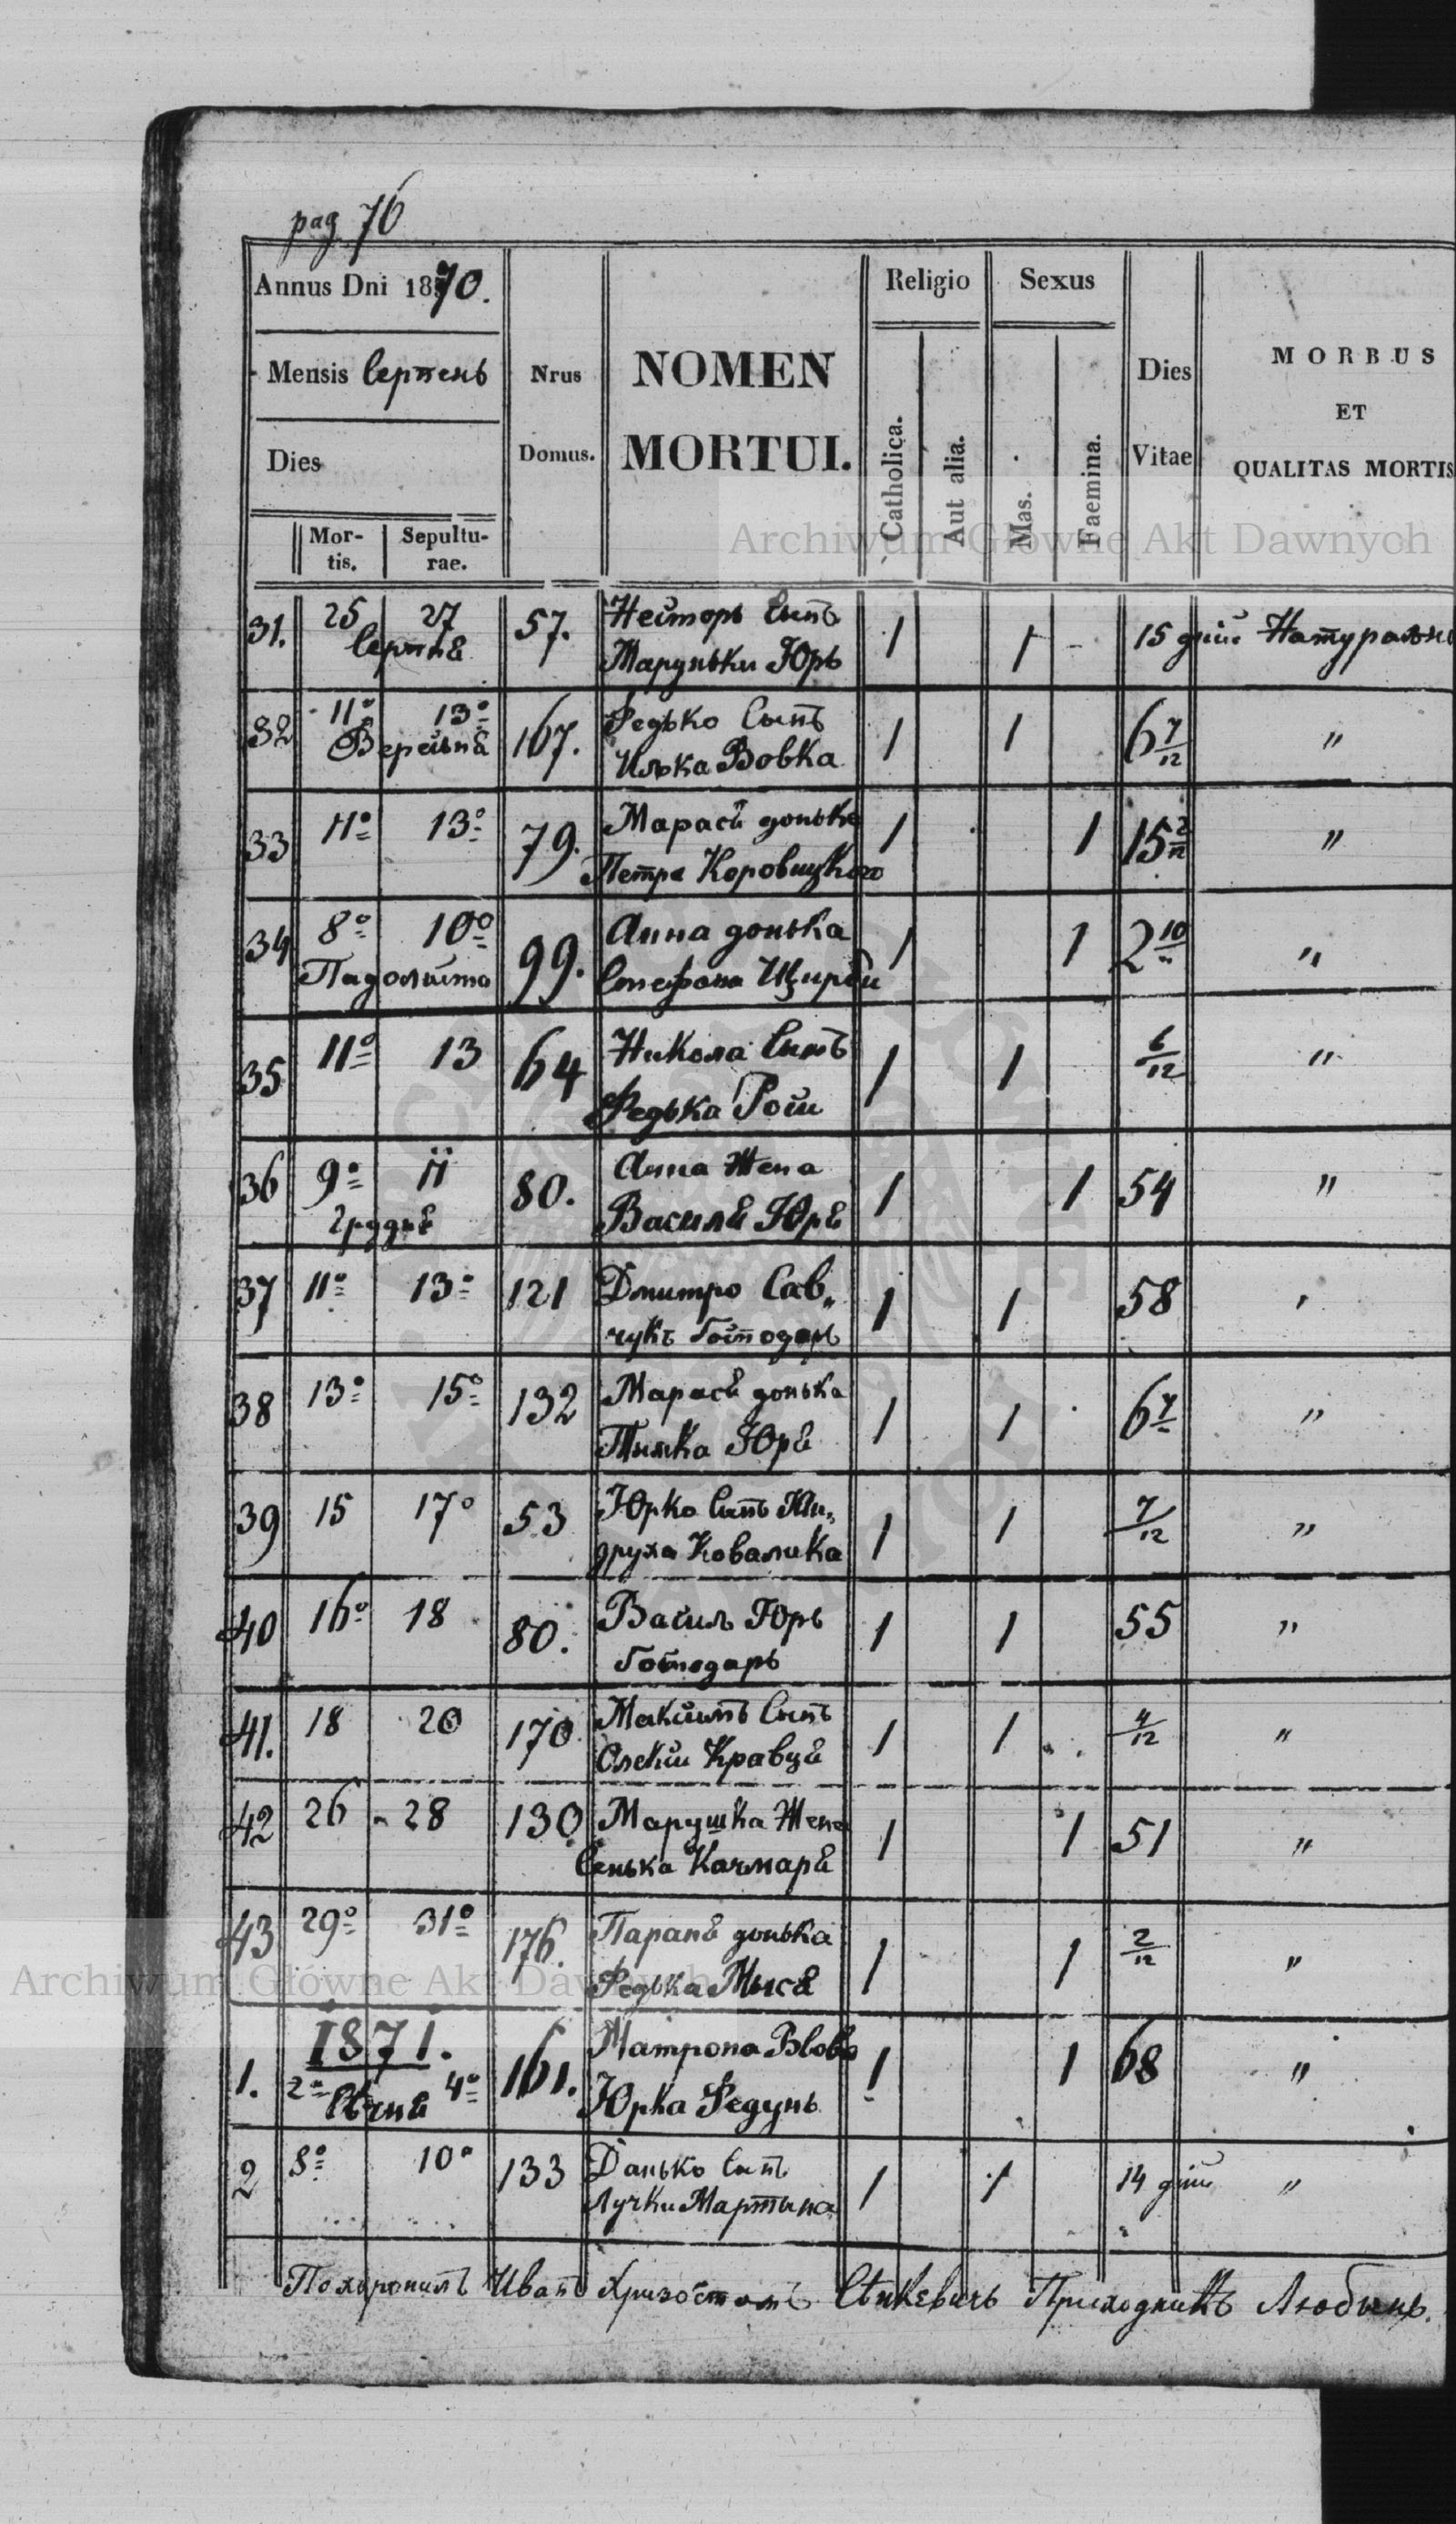 pag 76
Annus Dni 1870.
Mensis Серпень
Dies
Mortis. Sepulturae.
Nrus Domus.
NOMEN MORTUI.
Religio
Catholica. Aut alia.
Sexus
Mas. Faemina.
Dies Vitae
MORBUS ET QUALITAS MORTIS
31. 25 27 57. Несторъ Сынъ 1 1 - 15 дній Натурально
Серпня Маруньки Юръ
32 11º 13º 167. Федько Сынъ 1 1 6 7/12 "
Вересьня Илька Вовка
33 11º 13º 79. Марася донька 1 1 15 2/12 "
Петра Коровицкого
34 8º 10º 99. Анна донька 1 1 2 10/12 "
Падолиста Стефана
35 11º 13 64 Никола Сынъ 1 1 6/12 "
Федька
36 9º 11 80. Анна Жена 1 1 54 "
Грудня Василя Юря
37 11º 13º 121 Дмитро Сав„ 1 1 58 "
чукъ Господарь
38 13º 15º 132 Марася донька 1 1 6 7/12 "
Тимка Юря
39 15 17º 53 Юрко Сынъ Ян„ 1 1 7/12 "
друха Ковалика
40 16º 18 80. Василь Юръ 1 1 55 "
Господарь
41. 18 20 170 Максимъ Сынъ 1 1 4/12 "
Олексы Кравця
42 26 28 130 Марушка Жена 1 1 51 "
Сенька Качмаря
43 29º 31º 176. Параня донька 1 1 2/12 "
Федька Мыся
1871.
1. 2º 4º 161. Матрона Вдова 1 1 68 "
Сѣчня Юрка Федунь
2 8º 10º 133 Данько Сынъ 1 1 14 дній "
Лучки Мартына
Похоронилъ Иванъ Хризостомъ Сѣнкевичъ Приходникъ Любынь.
Archiwum Główne Akt Dawnych
Archiwum Główne Akt Dawnych